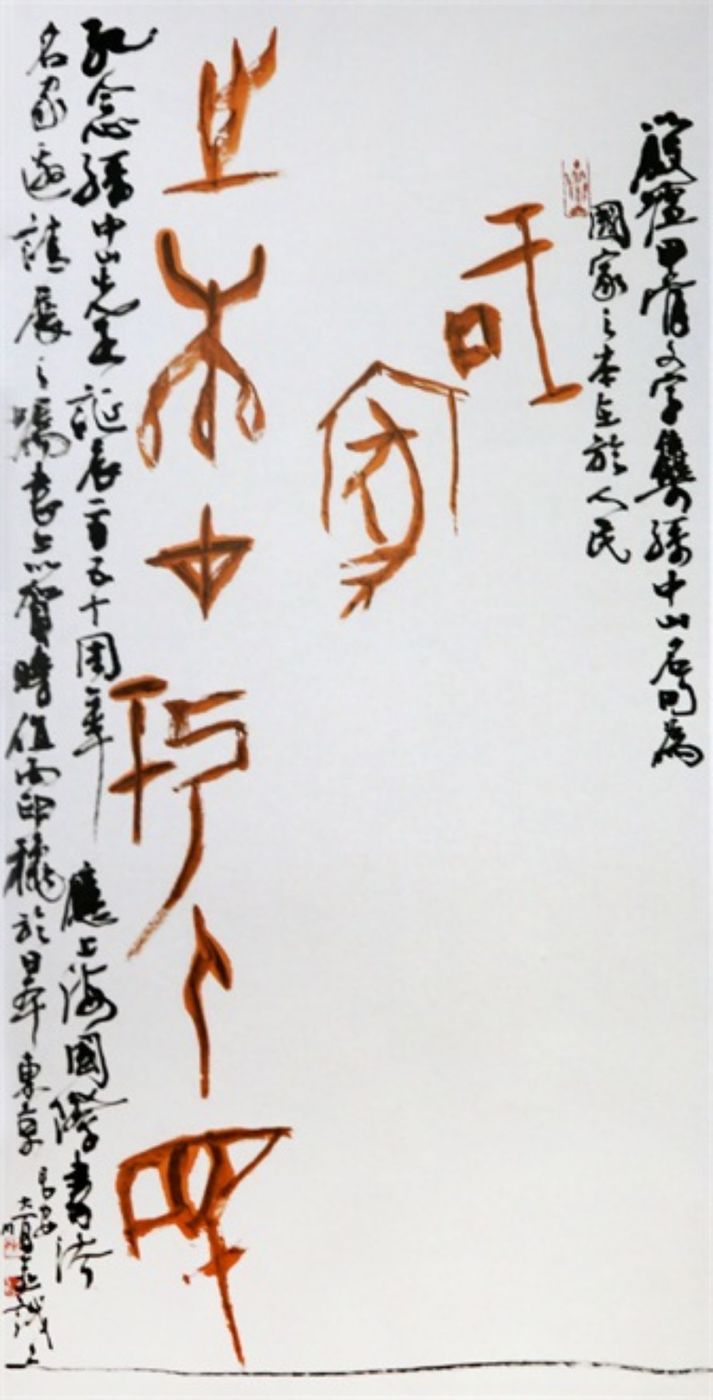 殷墟甲骨文字集孫中山名句為
國家之本在於人民
國
家
之本在於人民
紀念孫中山先生誕辰一百五十周年 應上海國際書法
名家邀請展之囑書之以賀時值丙申穐於日本東京